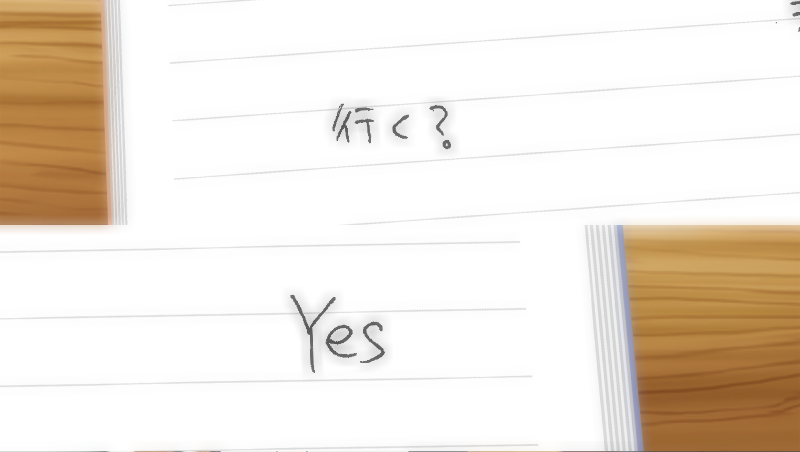 行く?
Yes